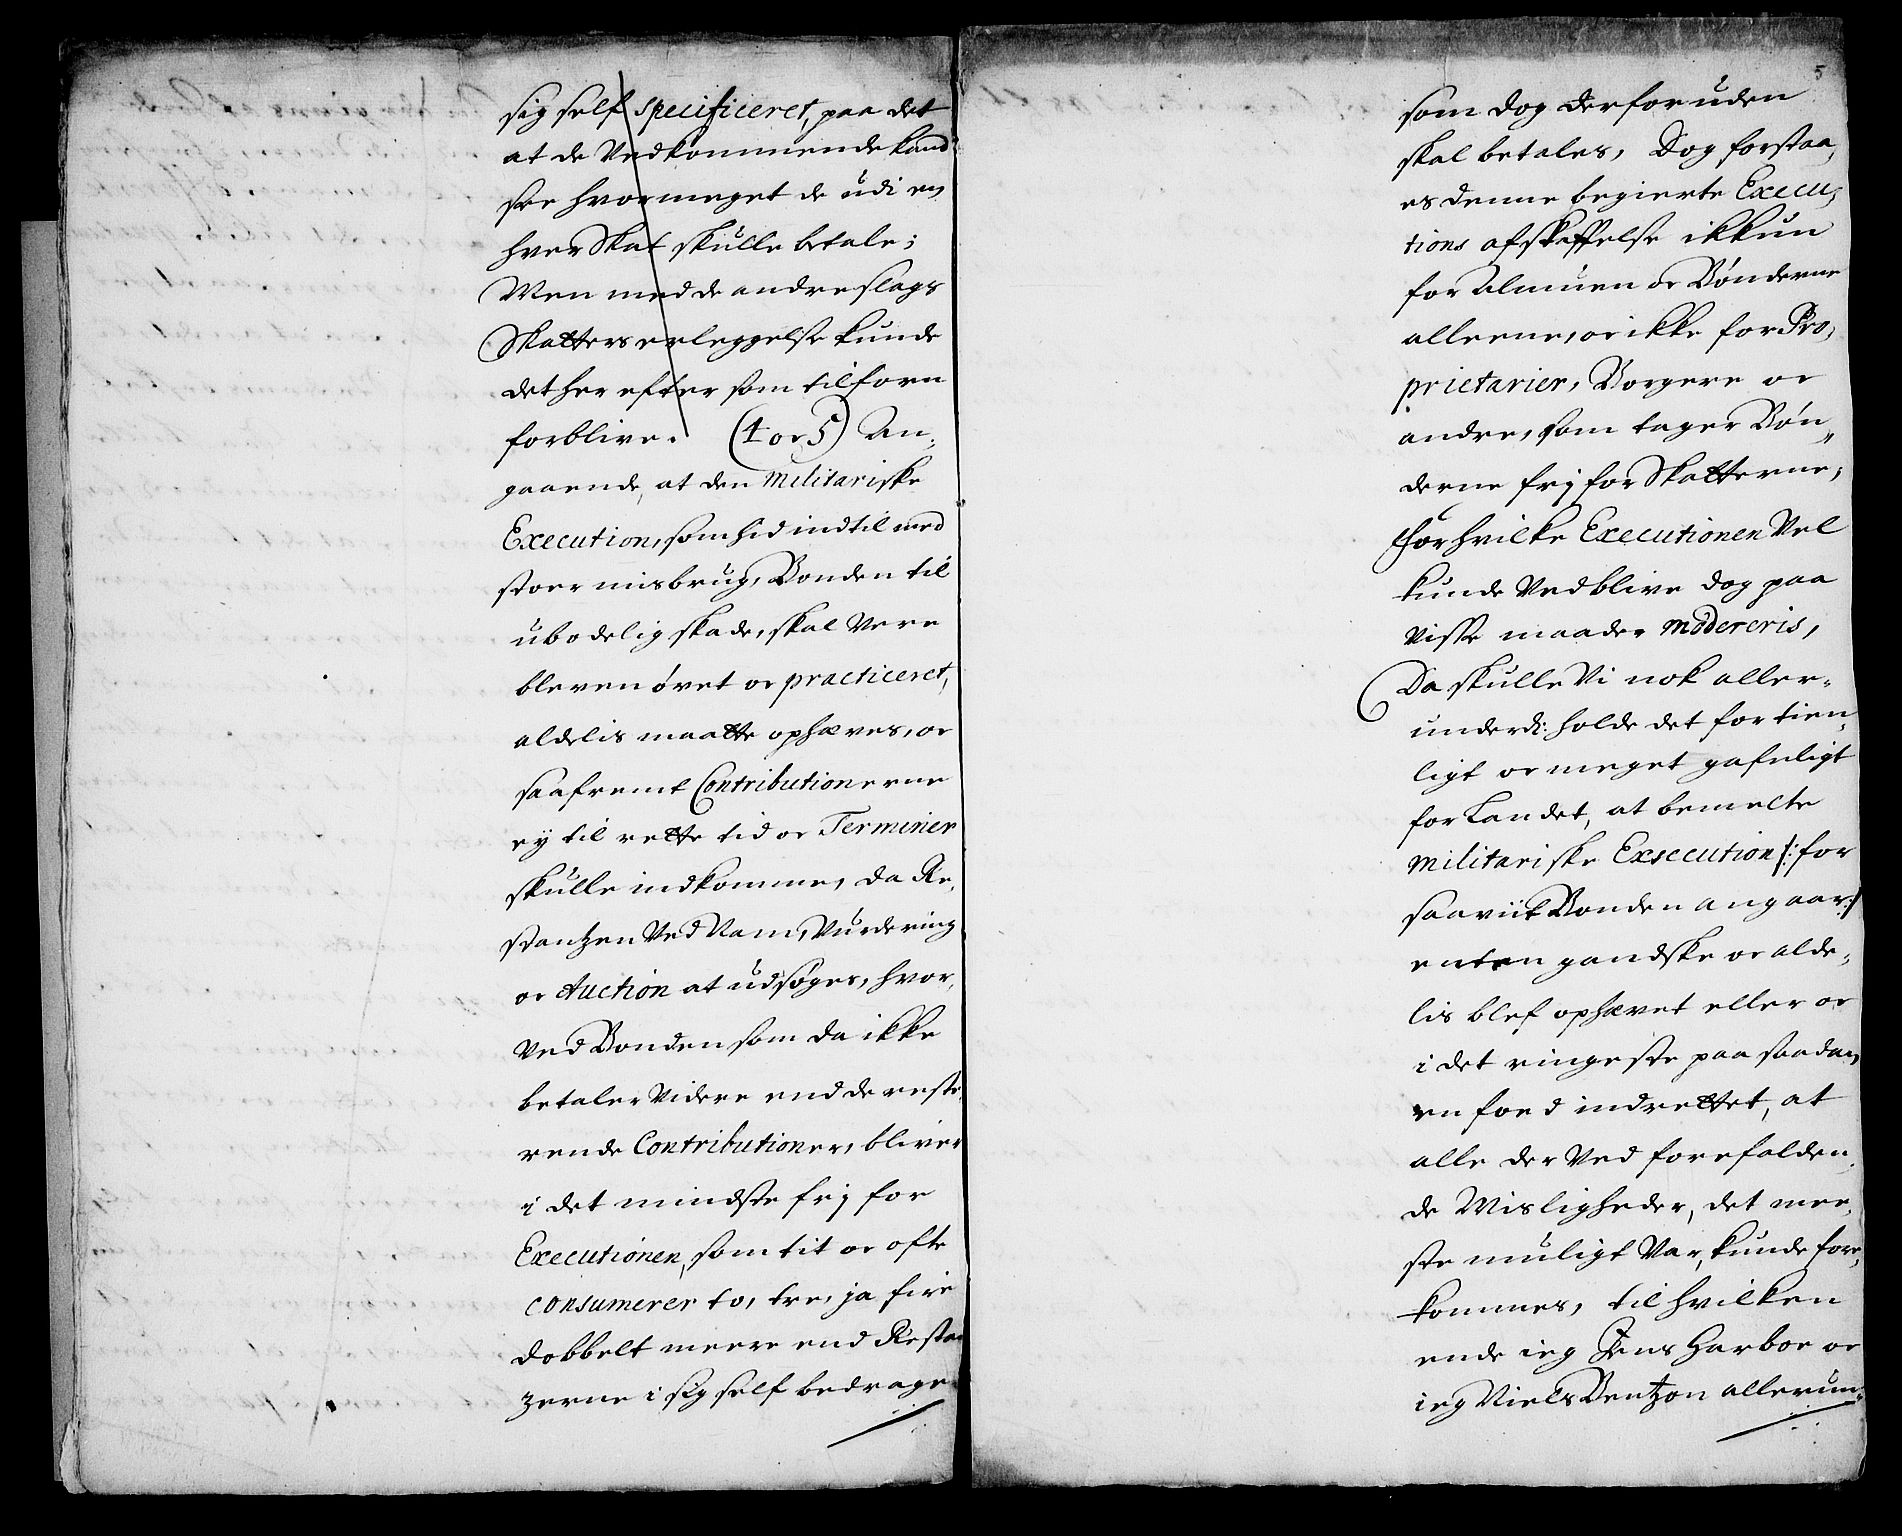 sig self specificeret, paa det
at de Vedkommende kand
see hvormeget de udi en,
hver Skat skulle betale;
Men med de andre slags
Skatters erleggelse kunde
det her efter som tilforn
forblive. (4 oc 5) An,
gaaende, at den Militariske
Execution, som hid indtil med
stoer misbrug, Bonden til
ubodelig skade, skal Vere
bleven øvet oc practiceret,
aldelis maatte ophæves, oc
saafremt Contributionerne
ey til rette tid oc Terminer
skulle indkomme, da Re,
stantzen Ved Nam, Vurdering
oc Auction at udsøges, hvor,
Ved Bonden som da ikke
betaler Videre end de reste,
rende Contributioner, bliver
i det mindste frj for
Executionen, som tit oc ofte
consumerer to, tre, ja fire
dobbelt meere end Restan
zerne i sig self bedrage
5
som dog derforuden
skal betales, Dog forstaa,
es denne begierte Execu,
tions afskaffelse ikkun
for Almuen oc Bønderne
alleene, oc ikke for Pro,
prietarier, Borgere oc
andre, som tager Bøn,,
derne frj for Skatterne,
for hvilke Executionen Vel
kunde Vedblive dog paa
Visse maader moderis,
Da skulle Vi nok aller,
underd: holde det for tien,
ligt oc meget gafnligt
for Landet, at bemelte
Militariske Exsecution /: for
saaviit Bonden angaar :/
enten gandske oc alde,
lis blef ophævet eller oc
i det ringeste paa saadan
en foed indrettet, at
alle der Ved forefalden,
de Misligheder, det mee,
ste muligt Var, kunde fore,
kommes, til hvilken
ende ieg Jens Harboe oc
ieg Niels Bentzon allerun,